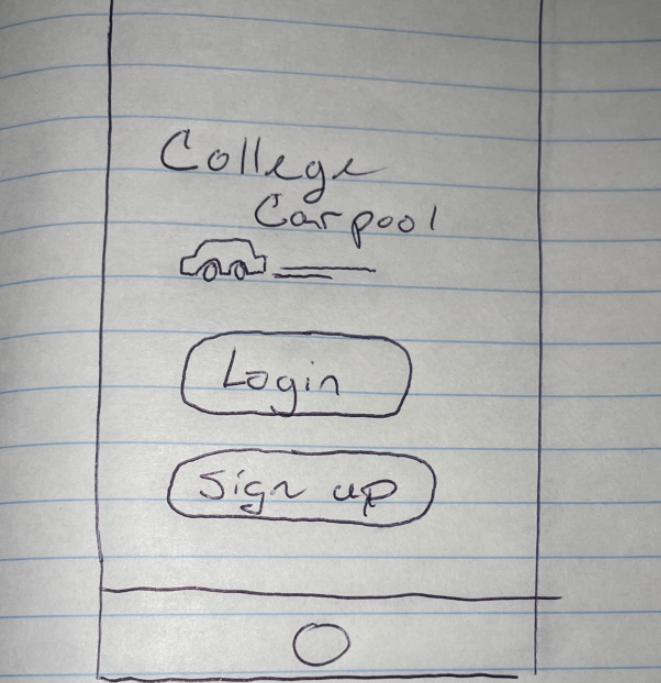 College
Carpool
Login
Sign up